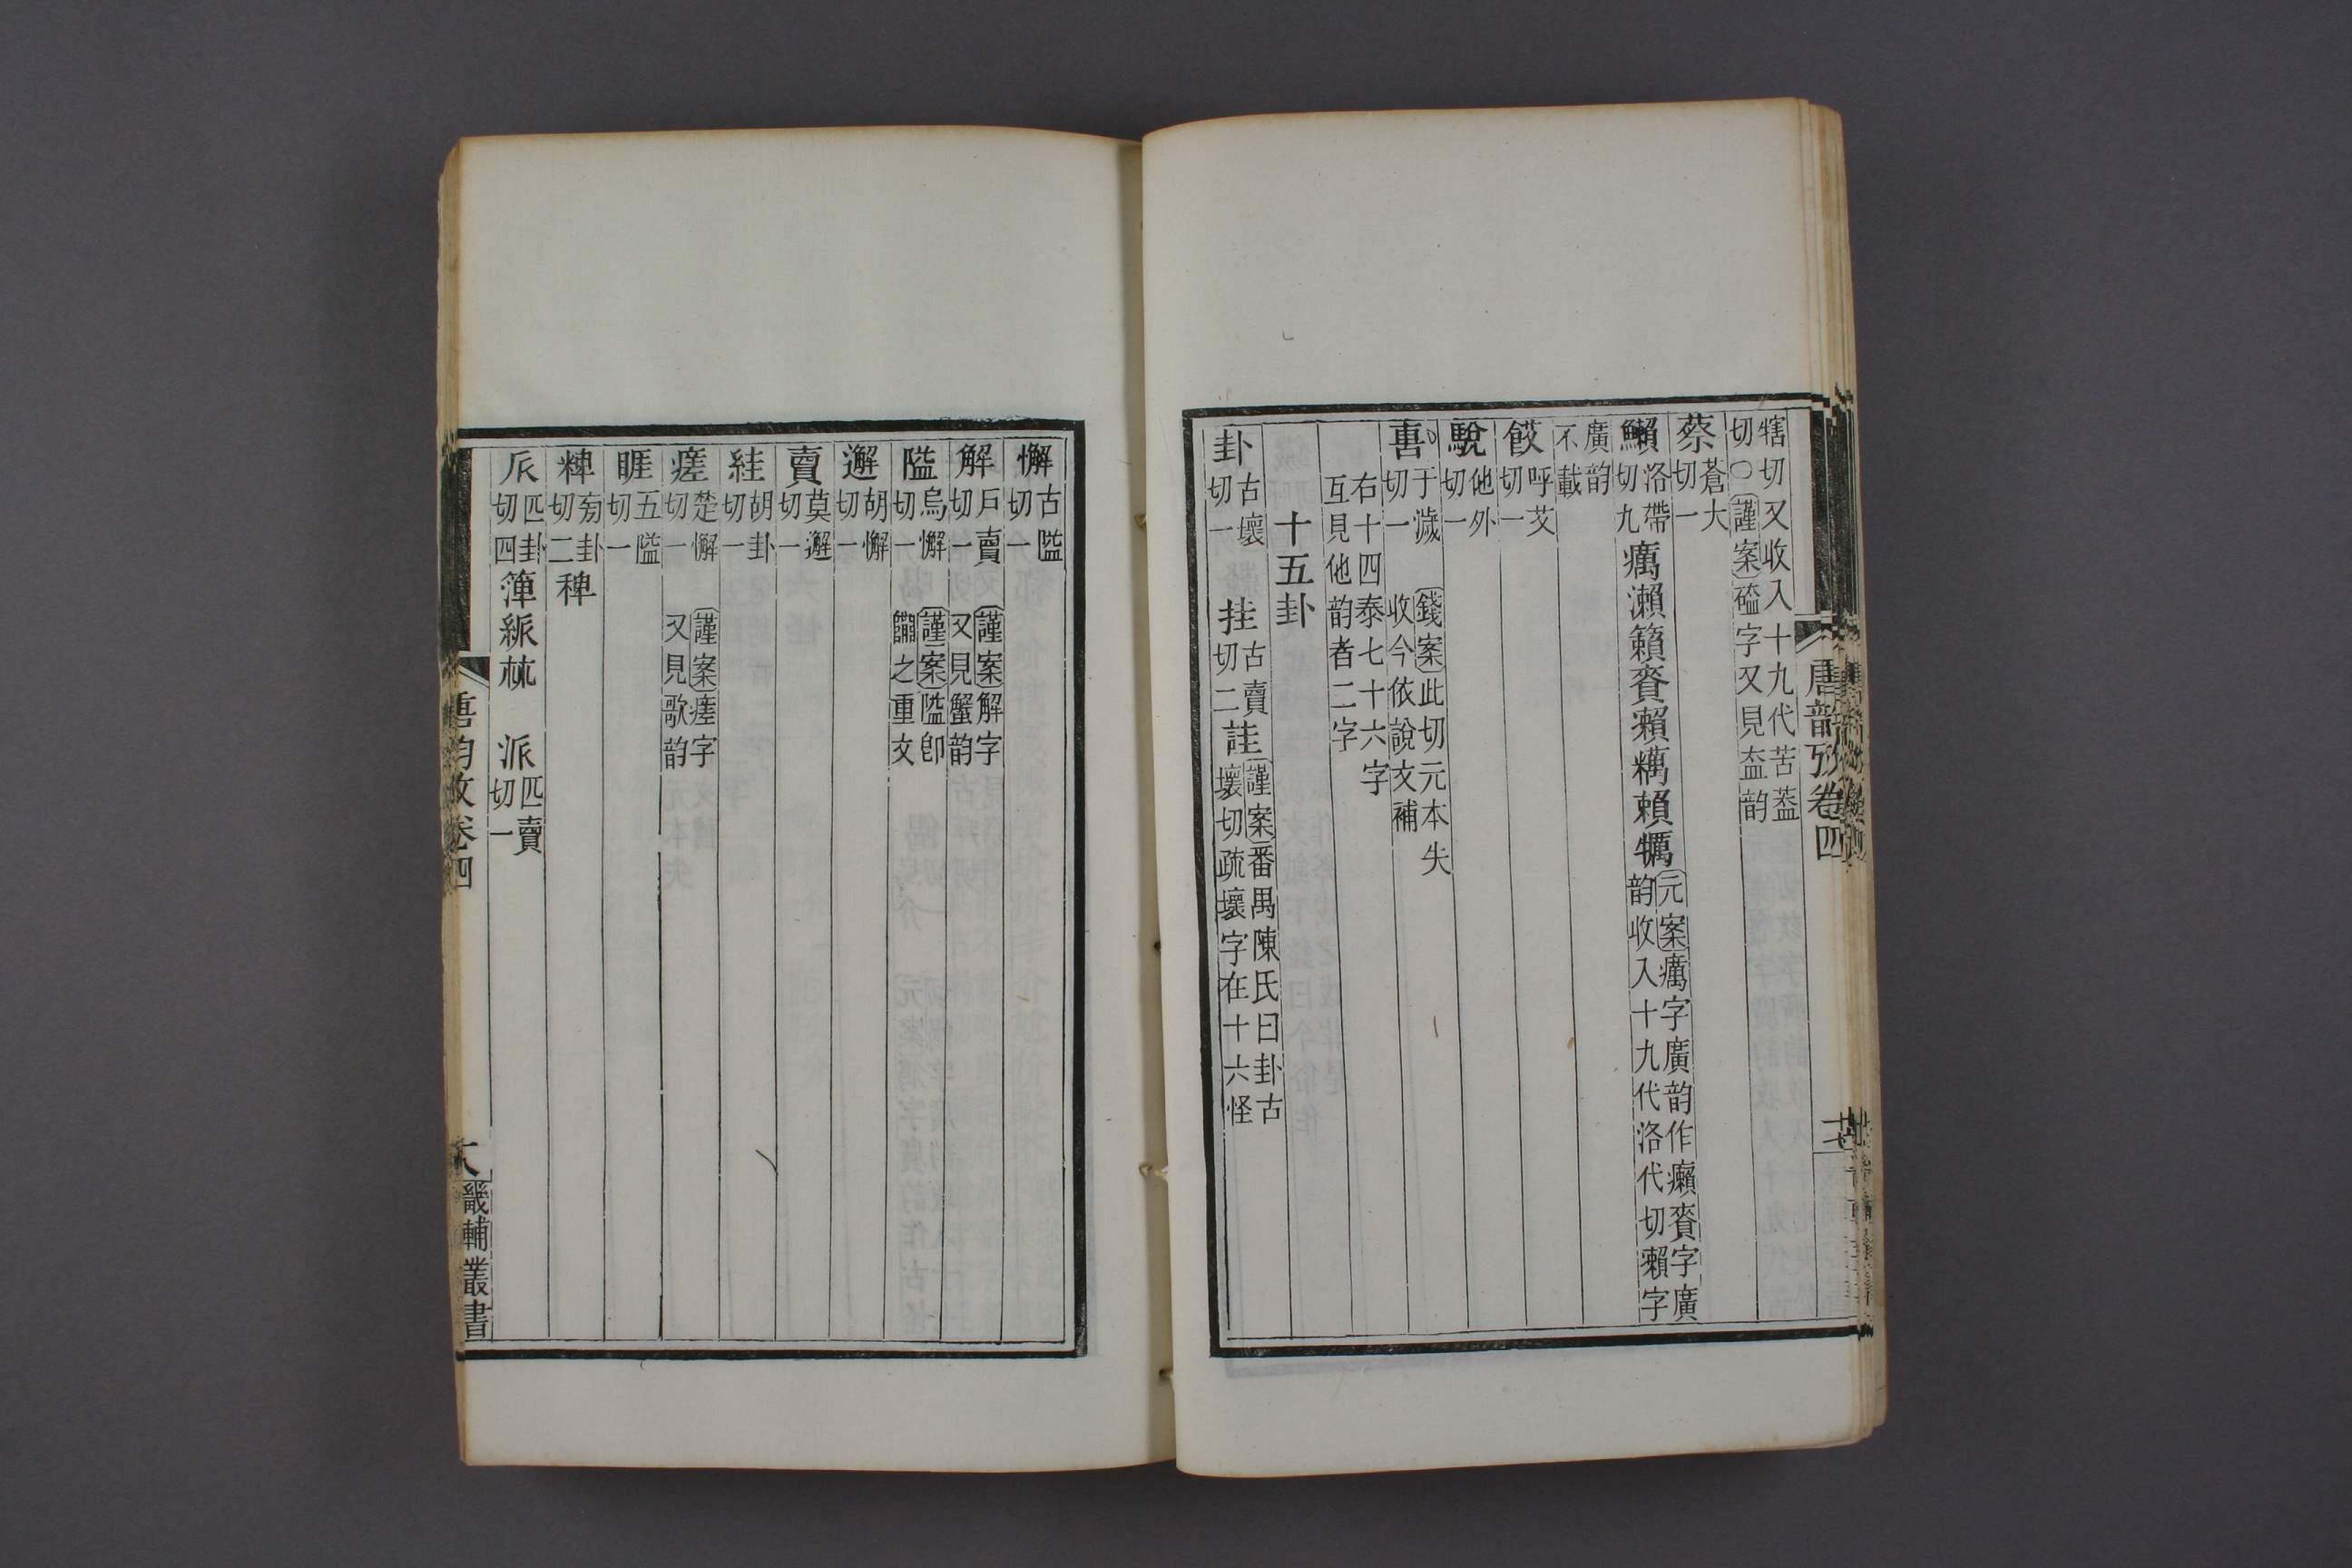 唐韵攷卷四
犗切又收入十九代苦葢
切〇謹案磕字又見盇韵
蔡蒼大切一
鱲洛帶切九癘瀨籟賚癩糲賴犡元案癘字廣韵作癩賚字廣韵收入十九代洛代切癩字
廣韵不載
餀呼艾切一
駾他外切一
軎于濊切一錢案此切元本失收今依說文補
右十四泰七十六字
互見他韵者二字
十五卦
卦古壞切一挂古賣切二詿謹案番禺陳氏曰卦古壞切疏壞字在十六怪
懈古隘切一
解戶賣切一謹案解字又見蟹韵
隘烏懈切一謹案隘卽𨽀之重文
邂胡懈切一
賣莫邂切一
絓胡卦切一
瘥楚懈切一謹案瘥字又見歌韵
睚五隘切一
粺匄卦切二稗
𠂢匹卦切四簰紙𣏟派匹賣切一
唐韵攷卷四
畿輔叢書